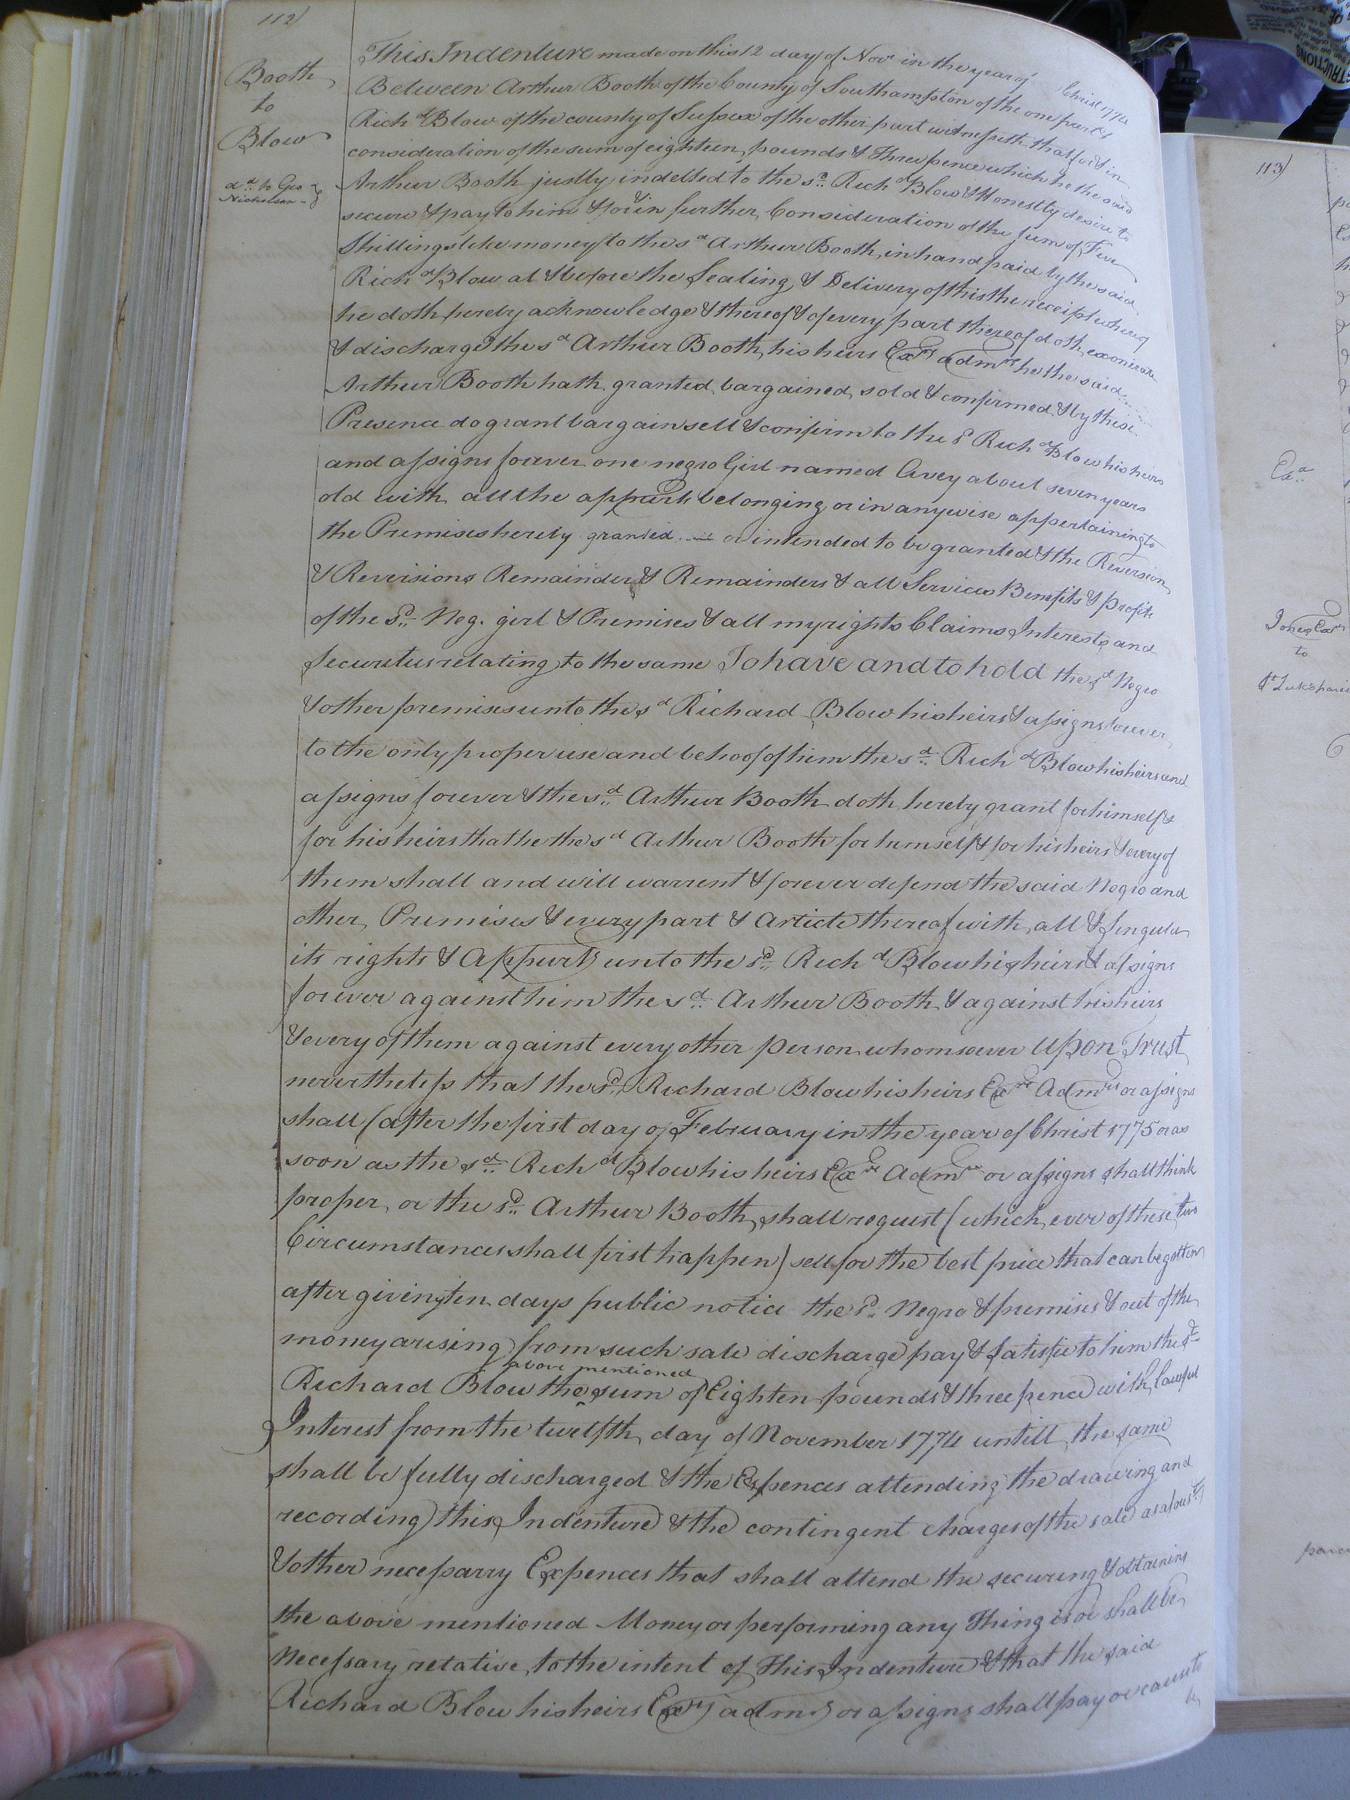 112)
Booth
to
Blow
dd. to Geo
Nicholson
This Indenture made on this 12 day of Novr in the year of Christ 1774
Between Arthur Booth of the County of Southampton of the one part &
Richd Blow of the county of Sussex of the other part witnesseth that for & in
consideration of the sum of eighteen pounds & Three pence which he the said
Arthur Booth justly indebted to the sd. Richd Blow & Honestly desire to
secure & pay to him & for & in further Consideration of the sum of Five
Shillings like money to the sd Arthur Booth in hand paid by the said
Richd Blow at & before the Sealing & Delivery of this the receipt whereof
he doth hereby acknowledge & thereof & of every part thereof doth exonerate
& discharge the sd Arthur Booth, his heirs Exrs admrs he the said
Arthur Booth hath granted, bargained, sold & confirmed & by these
Presence do grant bargain sell & confirm to the sd Richd Blow his heirs
and assigns forever one negro Girl named Avey about seven years
old with all the appurts belonging or in anywise appertaining to
the Premises hereby granted or intended to be granted & the Reversion
& Reversions Remainder & Remainders & all Services Benefits & profits
of the sd. Neg. girl & Premises & all my rights Claims Interests and
Securetus relating to the same To have and to hold the sd Negro
& other premises unto the sd Richard Blow his heirs & assigns forever
to the only proper use and behoof of him the sd. Richd Blow his heirs and
assigns forever & the sd. Arthur Booth doth hereby grant for himself &
for his heirs that he the sd Arthur Booth for himself & for his heirs & every of
them shall and will warrent & forever defend the said Negro and
other Premises & every part & Article thereof with all & Singular
its rights & Appurts unto the sd. Richd Blow his heirs & assigns
forever against him the sd. Arthur Booth & against his heirs
& every of them against every other person whomsoever Upon Trust
nevertheless that the sd. Richard Blow his heirs Exrs Admrs or assigns
shall (after the first day of February in the year of Christ 1775 or as
soon as the sd. Richd Blow his heirs Exrs Admrs or assigns shall think
proper, or the sd. Arthur Booth, shall request (which ever of these two
Circumstances shall first happen) sell for the best price that can be gotten
after giving ten days public notice the sd. Negro & premises & out of the
money arising from such sale discharge pay & satisfie to him the sd.
above mentioned
Richard Blow the sum of Eighten pounds & three pence with lawful
Interest from the twelfth day of November 1774 untill the same
shall be fully discharged & the Expences attending the drawing and
recording this Indenture & the contingent charges of the sale as aforesd.
& other necessarry Expences that shall attend the securing & obtaining
the above mentioned Money or performing any Thing is or shall be
Necessary relative to the intent of This Indenture & that the said
Richard Blow his heirs Exrs admrs or assigns shall pay or cause to
be
113)
Exa.
Jones Exr
to